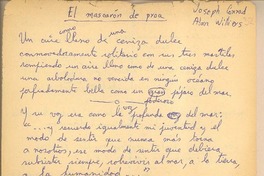 El mascarón de proa
Joseph Conrad
Alan Villiers
como una
Un aire lleno de ceniza dulce
conmovedoramente solitario con sus tres mástiles
rompiendo un aire lleno como de una ceniza dulce
una arboladura no vencida en ningún océano
profundamente bella como un gran pájaro del mar.
o vg poderoso
Y su voz era como la profunda voz del mar:
"... y recuerdo igualmente mi juventud y el
modo de sentir que nunca más
a nosotros; ese modo de sentir que debiera
subsistir siempre, sobrevivir al mar, a la tierra
a la humanidad